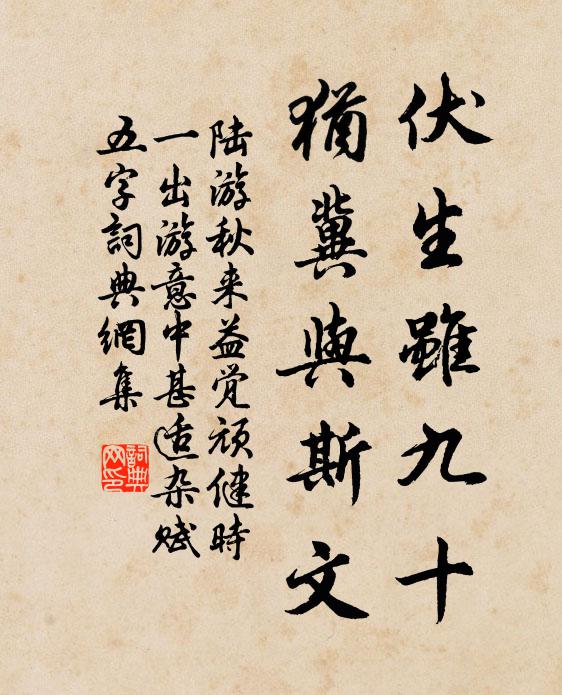 伏生雖九十
猶冀與斯文
陆游秋来益觉顽健時
一出游意中甚适杂赋
五字詞典網集
詞典
网印